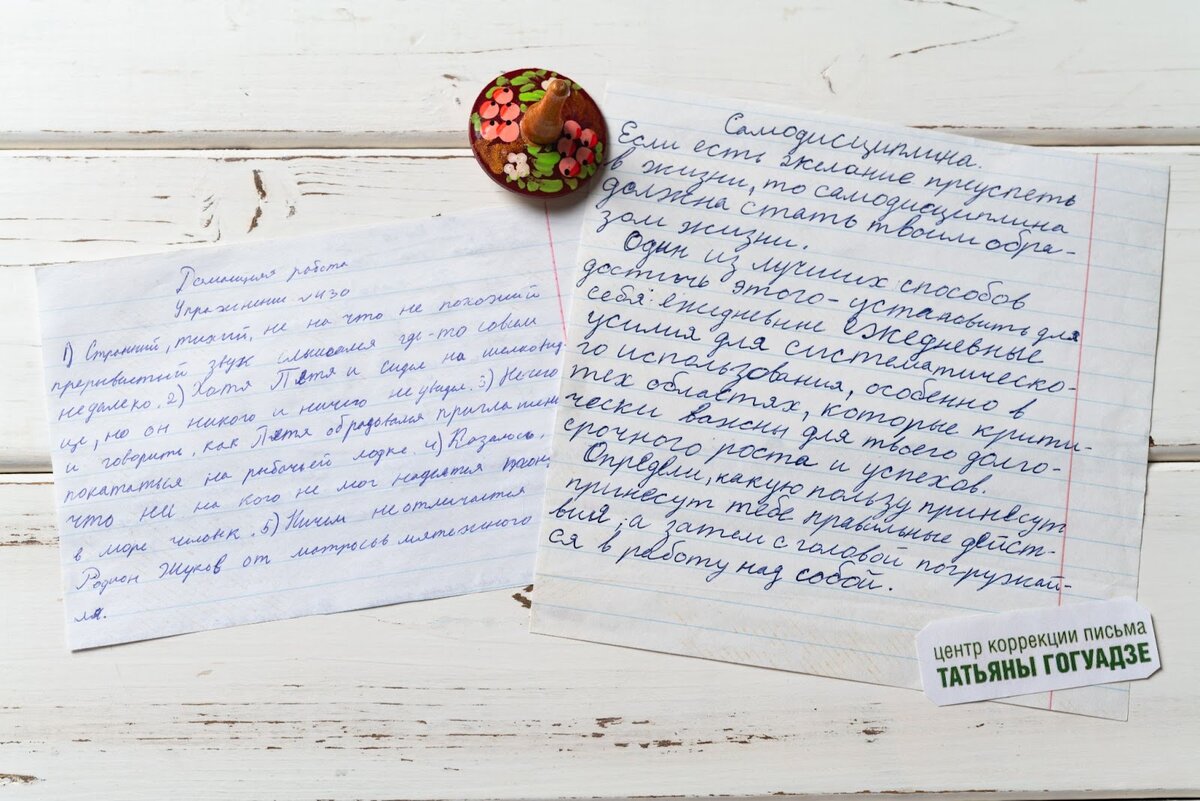 Домашняя работа
Упражнение №430
1) Странный, тихий, не на что не похожий
прерывистый звук слышался где-то совсем
недалеко. 2) Хотя Петя и сидел на шелковид-
це, но он никого и ничего не увидел. 3) Нечего
и говорить, как Петя обрадовался приглашени
покататься на рыбачьей лодке. 4) Казалось,
что ни на кого не мог надеятся
в море человек. 5) Ничем не отличается
Родион Жуков от матросов мятежного
ля.
Самодисциплина.
Если есть желание преуспеть
в жизни, то самодисциплина
должна стать твоим обра-
зом жизни.
Один из лучших способов
достичь этого - установить для
себя: ежедневные ежедневные
усилия для систематическо-
го использования, особенно в
тех областях, которые крити-
чески важны для твоего долго-
срочного роста и успехов.
Определи, какую пользу принесут
принесут тебе правильные дейст-
вия, а затем с головой погружай-
ся в работу над собой.
центр коррекции письма
ТАТЬЯНЫ ГОГУАДЗЕ